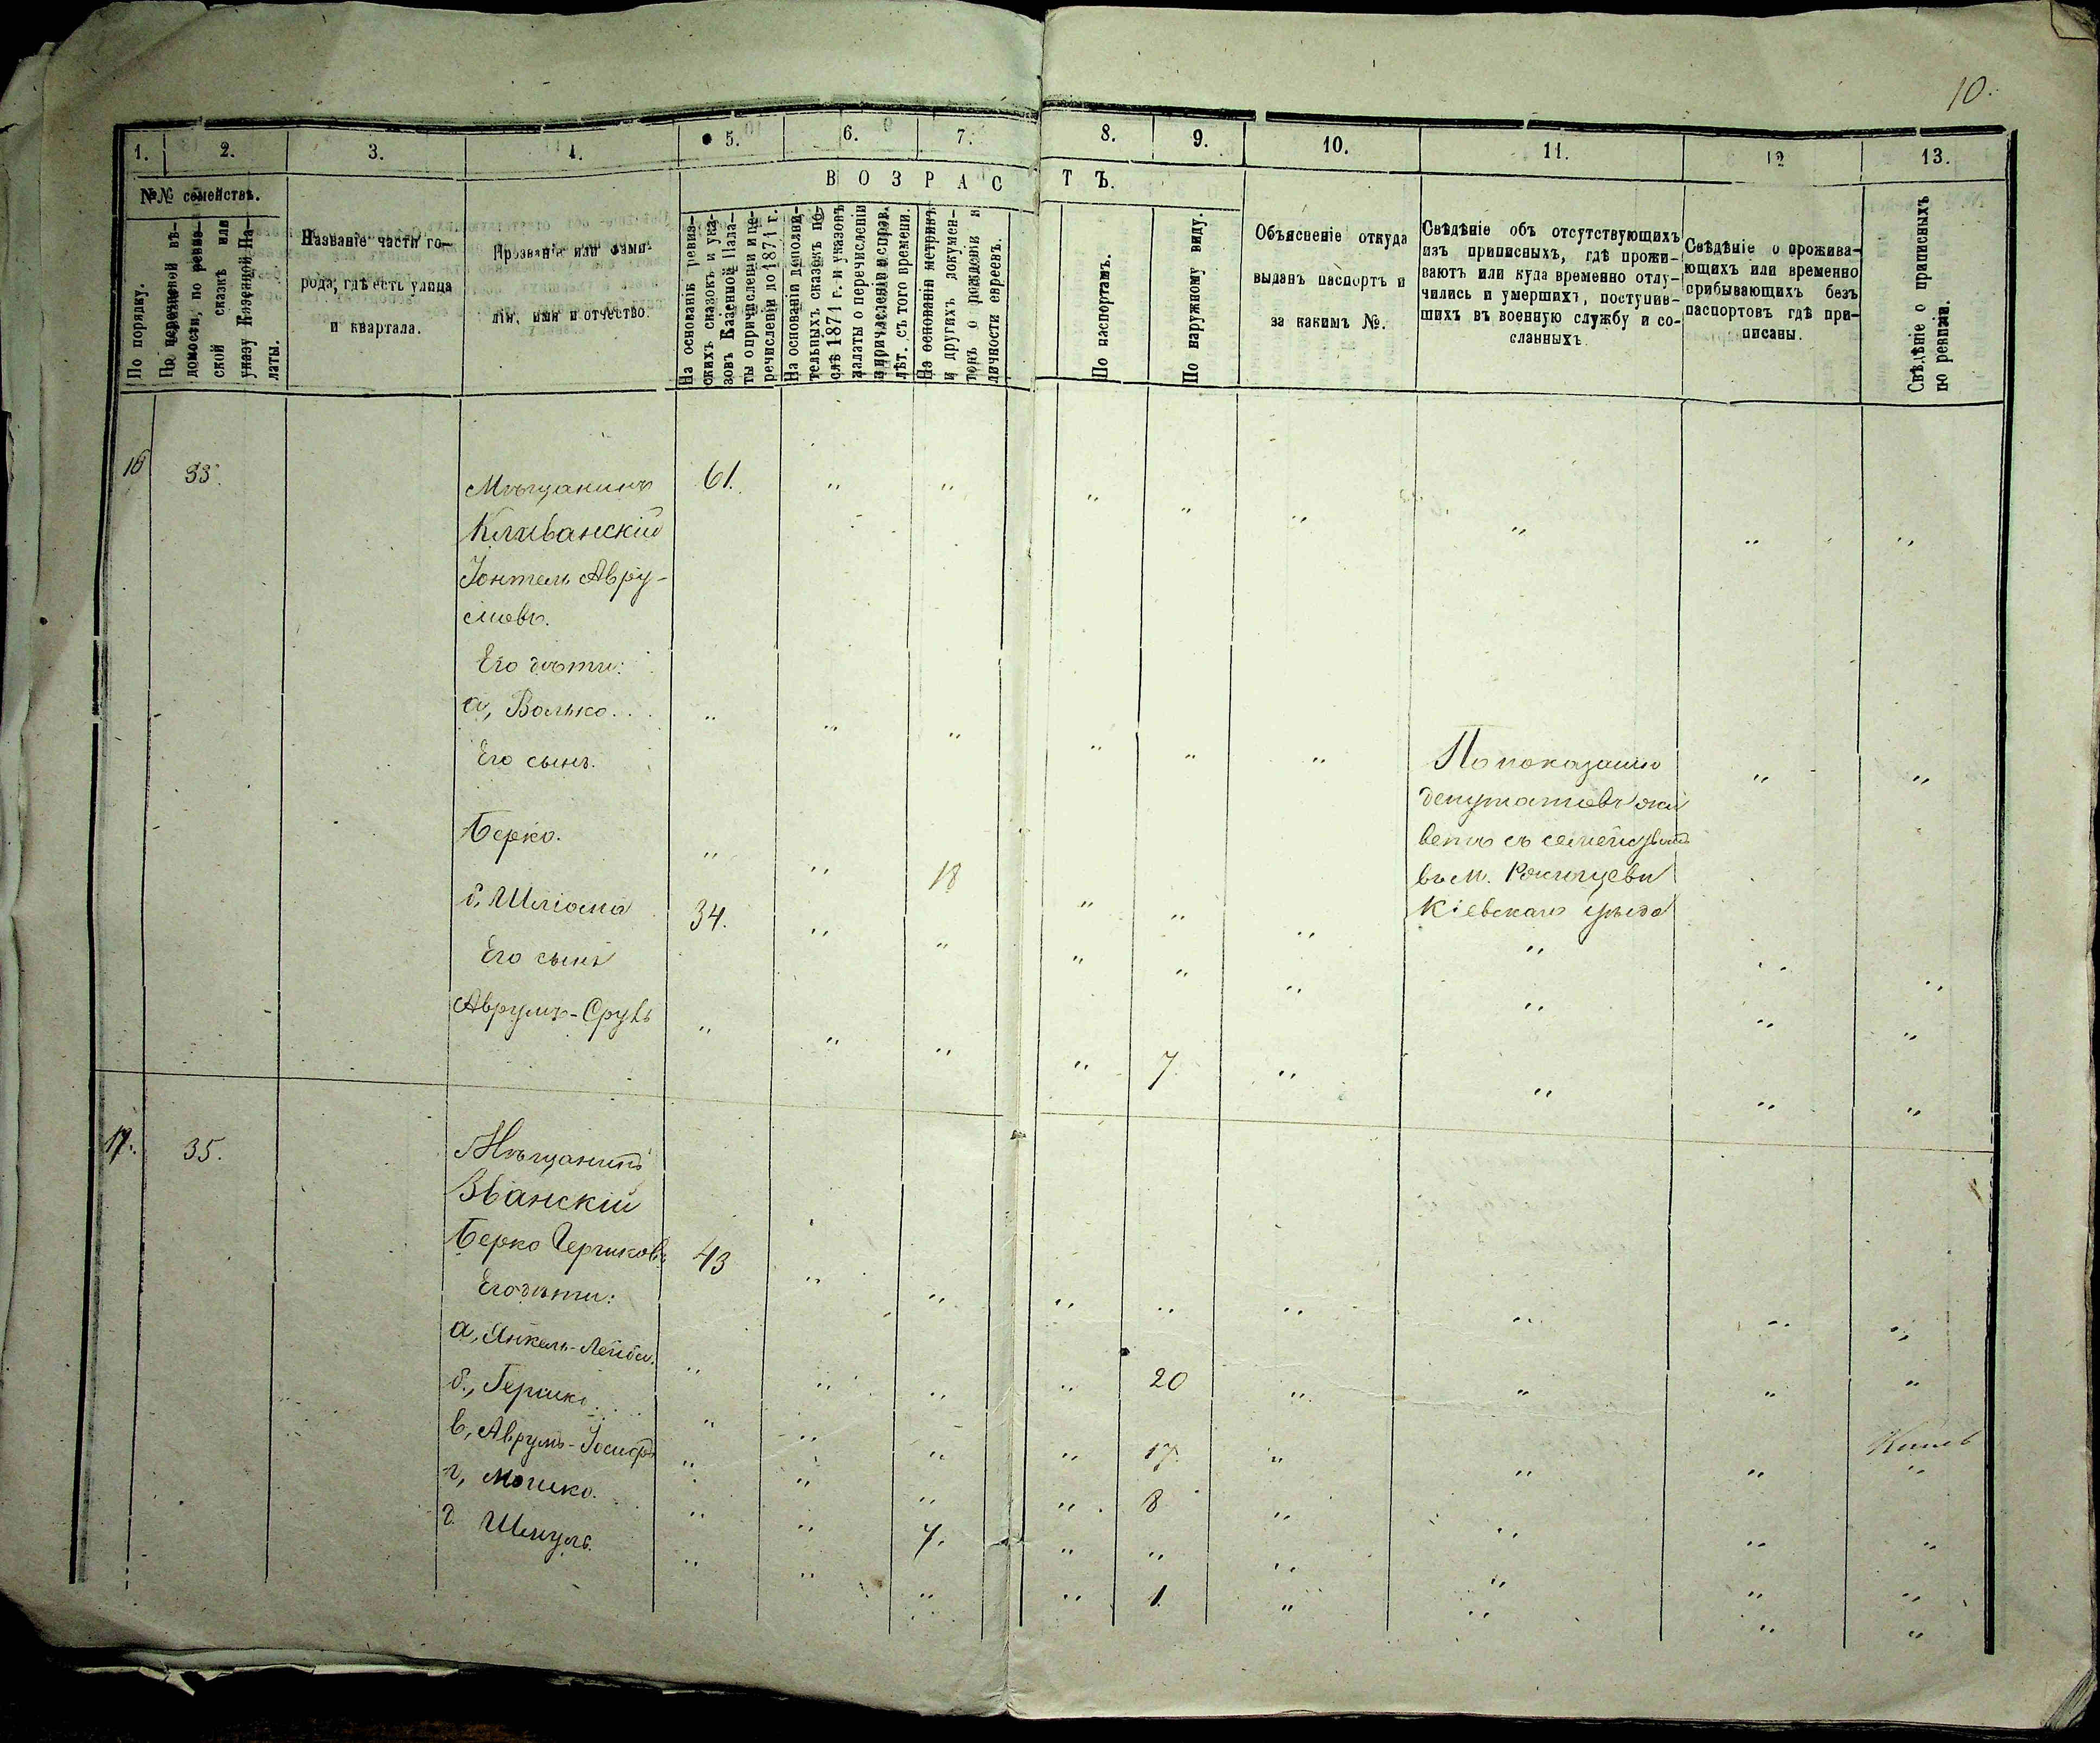 10.
1. 2. 3. 4. 5. 6. 7. 8. 9. 10. 11. 12 13.
№№ семействъ.
ВОЗРАСТЪ.
По порядку.
По перечневой вѣ-
домости, по ревиз-
ской сказкѣ или
указу Казенной Па-
латы.
Названіе части го-
рода, гдѣ есть улица
и квартала.
Прозваніе или фами-
лія, имя и отчество.
На основаніи ревиз-
скихъ сказокъ и ука-
зовъ Казенной Пала-
ты о причисленіи и пе-
речисленіи до 1871 г.
На основаніи дополни-
тельныхъ сказокъ по-
слѣ 1871 г. и указовъ
палаты о перечисленіи
и причисленіи и справ.
лѣт. съ того времени.
На основаніи метрикъ
и другихъ докумен-
товъ о рожденіи и
личности евреевъ.
По паспортамъ.
По наружному виду.
Объясненіе откуда
выданъ паспортъ и
за какимъ №.
Свѣдѣніе объ отсутствующихъ
изъ приписныхъ, гдѣ прожи-
ваютъ или куда временно отлу-
чились и умершихъ, поступив-
шихъ въ военную службу и со-
сланныхъ
Свѣдѣніе о прожива-
ющихъ или временно
прибывающихъ безъ
паспортовъ гдѣ при-
писаны.
Свѣдѣніе о приписныхъ
по ревизіи.
16 33. Мѣщанинъ 61. " " " " " " " "
Кливанскій
Іонтель Авру-
мовъ.
Его дѣти:
а, Волько... " " " " " " " "
Его сынъ.
По показанію
депутатовъ жи
ветъ съ семействомъ
въ м.
Кіевскаго уѣзда
Берко. " " 18 " " " " " "
б, Шліома 34. " " " " " " " "
Его сынъ
Аврумъ-Сруль " " " " 7 " " " "
17. 35. Мѣщанинъ
Званскій
Берко Гершковъ 43 " " " " " " " "
Его дѣти:
а, Янкель-Лейба. " " " " 20 " " " "
б., Гершко... " " " " 17. " " "
в, Аврумъ-Іосифъ " " " " 8 " " " "
г, Мошко. " " 7. " " " " " "
д. Шмуль. " " " " 1. " " " "